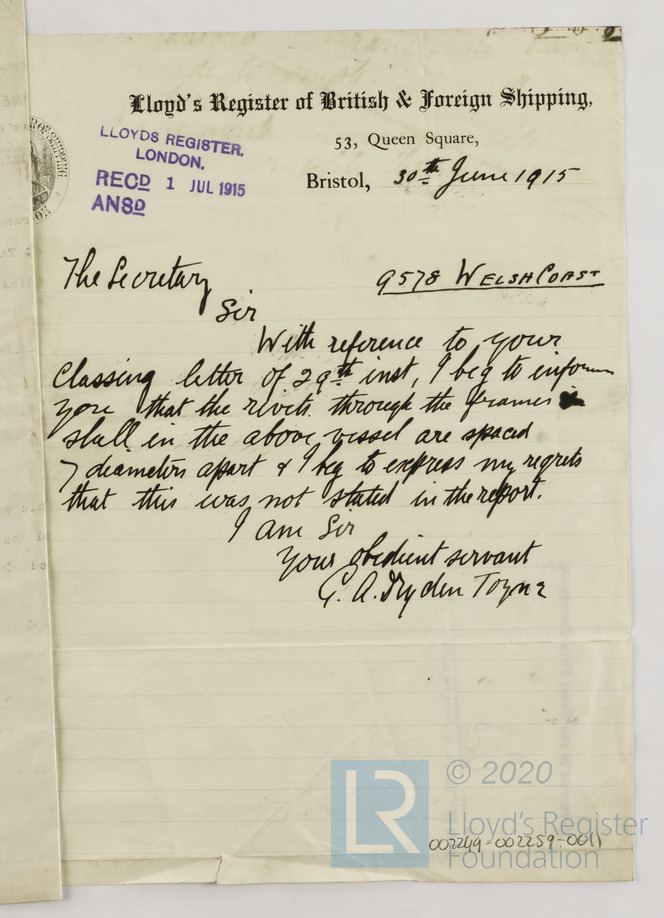 Lloyd's Register of British & Foreign Shipping,
53, Queen Square,
Bristol, 30th June 1915
LLOYDS REGISTER.
LONDON.
RECD 1 JUL 1915
ANSD
The Secretary
9578 WELSH COAST
Sir
With reference to your
Classing letter of 29th inst, I beg to inform
you that the rivets through the frames
shell in the above vessel are spaced
7 diameters apart & I beg to express my regrets
that this was not stated in the report.
I am Sir
Your obedient servant
G. A. Dryden Toyne
LR
© 2020
Lloyd's Register
Foundation
002249-002259-0011